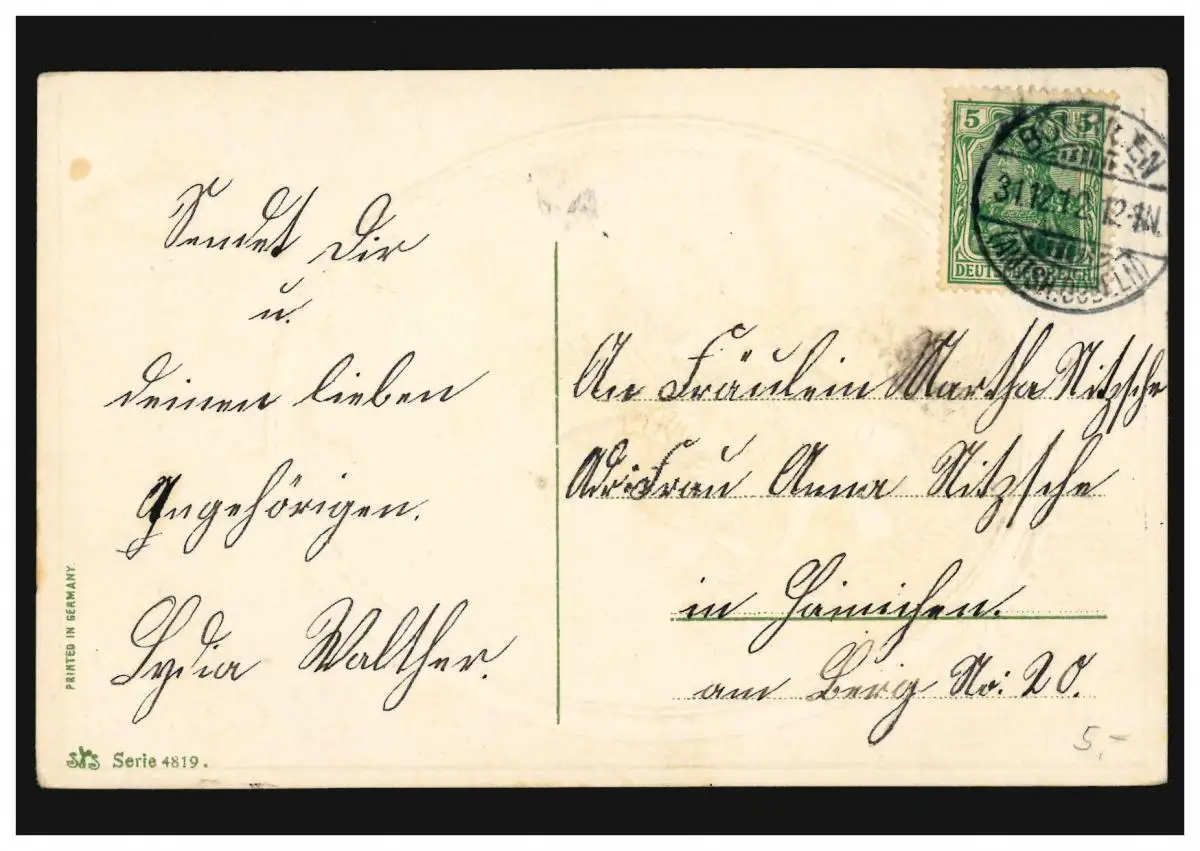 Sendet Dir
u.
deinen lieben
Angehörigen.
Lydia Walther.
PRINTED IN GERMANY.
Serie 4819.
5 5
DEUTSCHES REICH
31.12.12. 12-1N.
An Fräulein Martha Nitzsche
Adr: Frau Anna Nitzsche
in Hainichen.
am Berg No: 20.
5,-